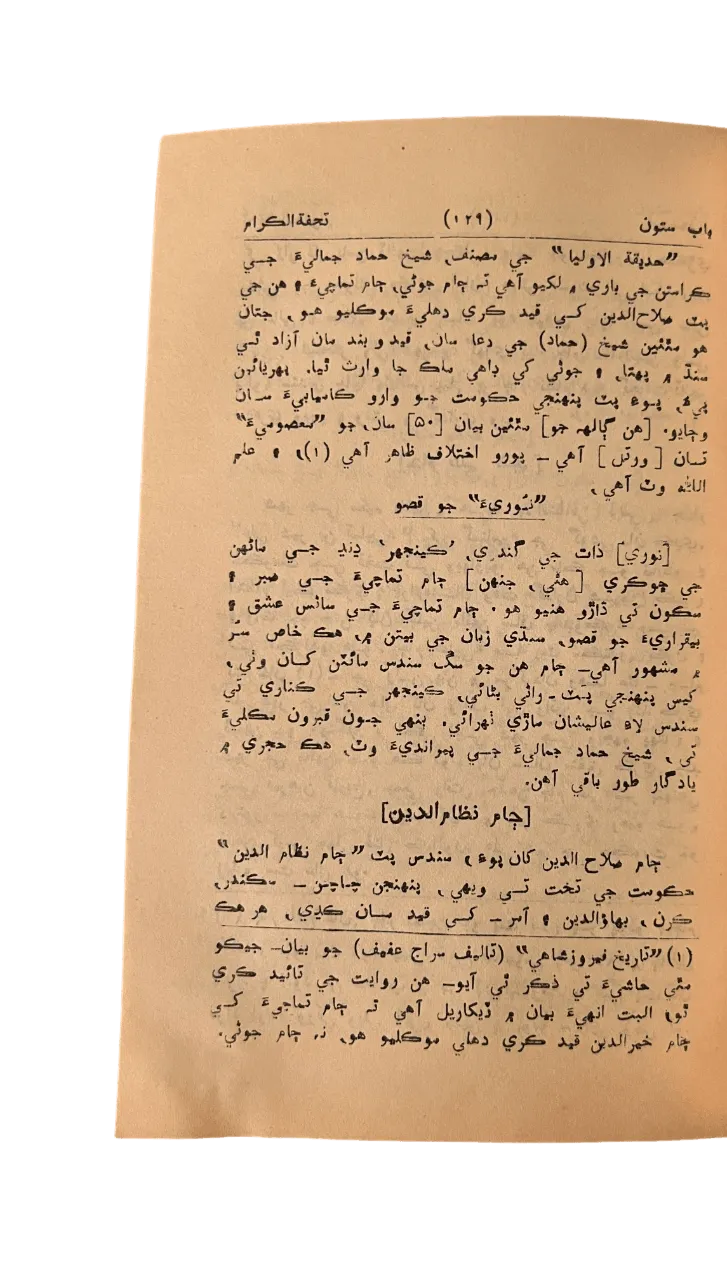 باب ستون (۱۲۹) تحفةالڪرام
”حديقة الاوليا“ جي مصنف، شيخ حماد جماليءَ جــي
ڪرامتن جي باري ۾ لکيو آهي تہ ڄام جوڻي، ڄام تماچيءَ ۽ هن جي
پٽ صلاح‌الدين کــي قيد ڪري دهليءَ موڪليو هــو، جتان
هو مٿئين شيخ (حماد) جي دعا سان، قيد و بند مان آزاد ٿــي
سنڌ ۾ پهتا، ۽ جوڻي کي ڊاهي ملڪ جا وارث ٿيا. پهريائين
پيءُ، پــوءِ پٽ پنهنجي حڪومت جــو وارو ڪاميابيءَ ســان
وڄايو. [هن ڳالهہ جو] مٿئين بيان [۵۰] سان، جو ”معصوميءَ“
تــان [ورتل] آهي ــ پورو اختلاف ظاهر آهي (۱)، ۽ علم
الله وٽ آهي،
”نُوريءَ“ جو قصو
[نوري] ذات جي گندري، ‘ڪينجهر’ ڍنڍ جــي ماڻهن
جي ڇوڪري [هئي، جنهن] ڄام تماچيءَ جــي صبر ۽
سڪون تي ڌاڙو هنيو هو. ڄام تماچيءَ جــي ساڻس عشق ۽
بيقراريءَ جو قصو، سنڌي زبان جي بيتن ۾، هڪ خاص سُر
۾ مشهور آهي ــ ڄام هن جو سڱ سندس مائٽن کــان وٺي،
کيس پنهنجي پَــٽ ــ راڻي بڻائي، ڪينجهر جــي ڪناري تي
سندس لاءِ عاليشان ماڙي ٺهرائي. ٻنهي جــون قبرون مڪليءَ
تي، شيخ حماد جماليءَ جــي پيرانديءَ وٽ، هڪ حجري ۾
يادگار طور باقي آهن.
[ڄام نظام‌الدين]
ڄام صلاح الدين کان پوءِ، سندس پٽ ”ڄام نظام الدين“
حڪومت جي تخت تــي ويهي، پنهنجن چــاچــن ــ سڪندر،
ڪرن، بهاؤالدين ۽ آمر ــ کــي قيد مــان ڪڍي، هر هڪ
(۱) ”تاريخ فيروزشاهي“ (تاليف سراج عفيف) جو بيان ــ جيڪو
مٿي حاشيءَ تي ذڪر ٿي آيو ــ هن روايت جي تائيد ڪري
ٿو، البت انهيءَ بيان ۾ ڏيکاريل آهي تہ ڄام تماچيءَ کــي
ڄام خيرالدين قيد ڪري دهلي موڪليو هو، نہ ڄام جوڻي.